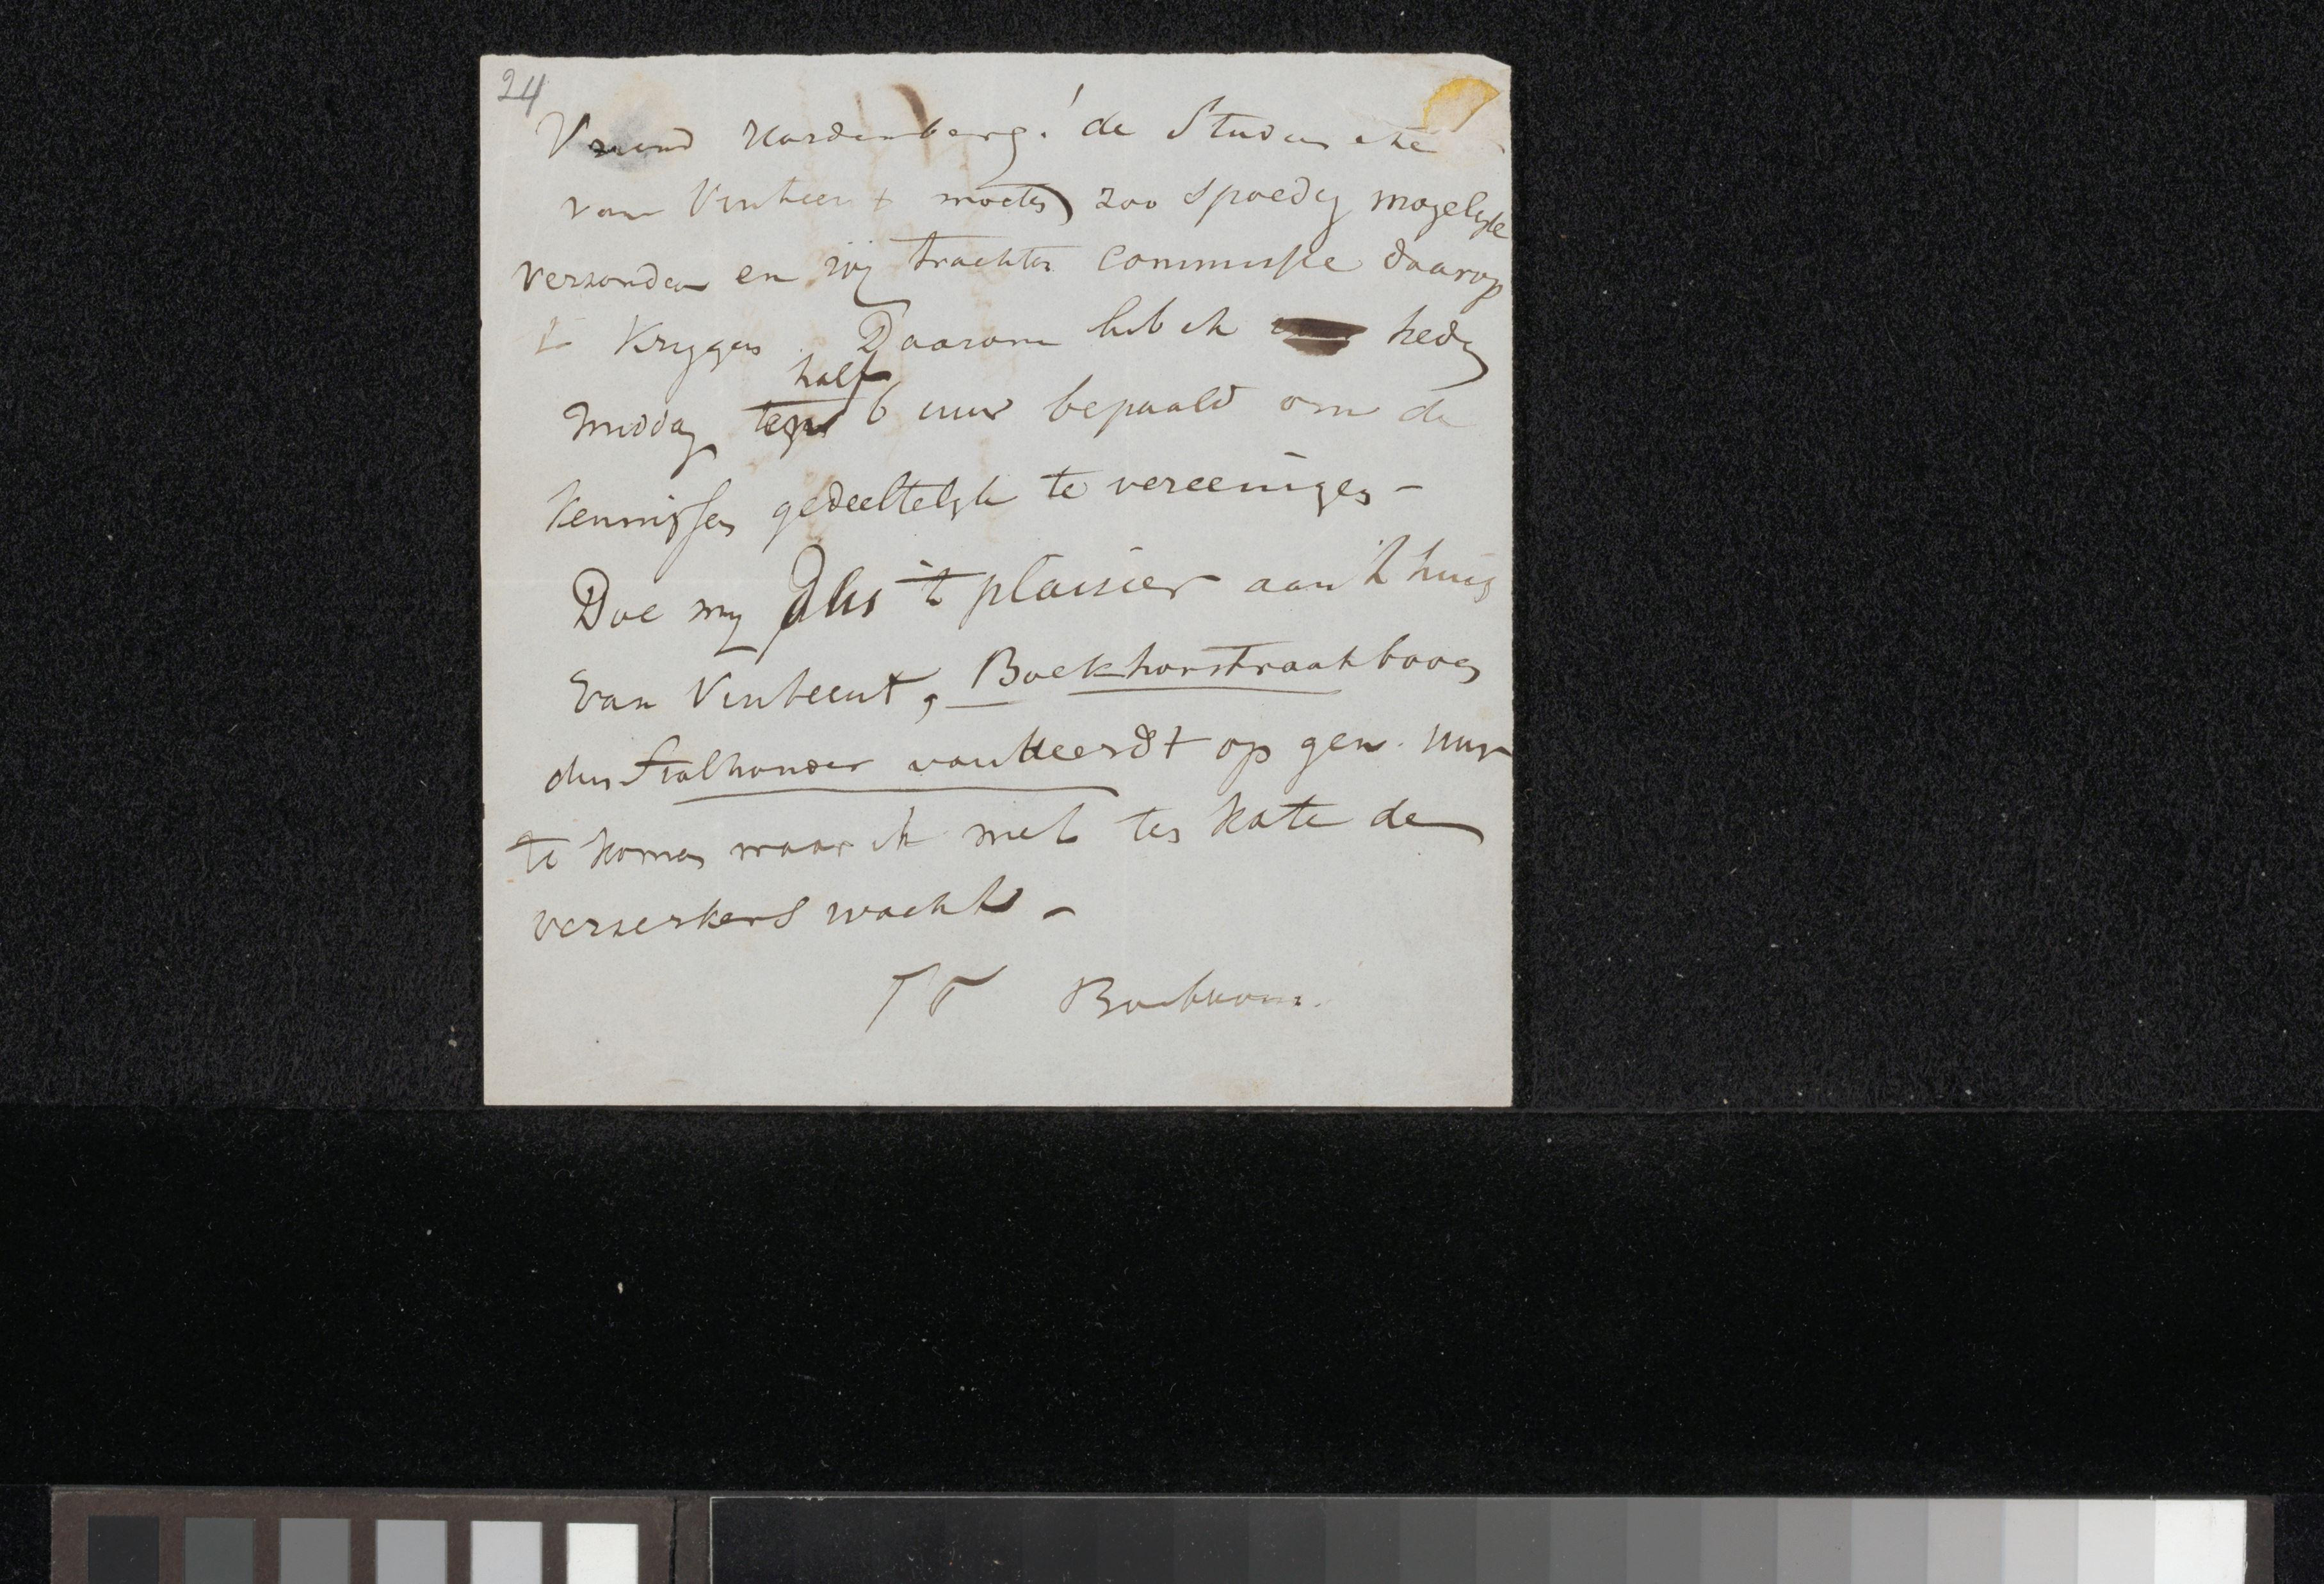 24
Vriend Hardenberg! de Studien etc
van Vintcent moeten zoo spoedig mogelyk
verzonden en wy trachten commissie daarop
te krygen. Daarom heb ik heden
middag half
tegen 6 uur bepaald om de
kennissen gedeeltelyk te vereenigen –
Doe my dus 't plaisier aan 't huis
van Vintcent, Boekhorstraat boven
den Stalhouder van Heerdt op gen. uur
te komen waar ik met ten Kate de
verzekerd wacht –
TT